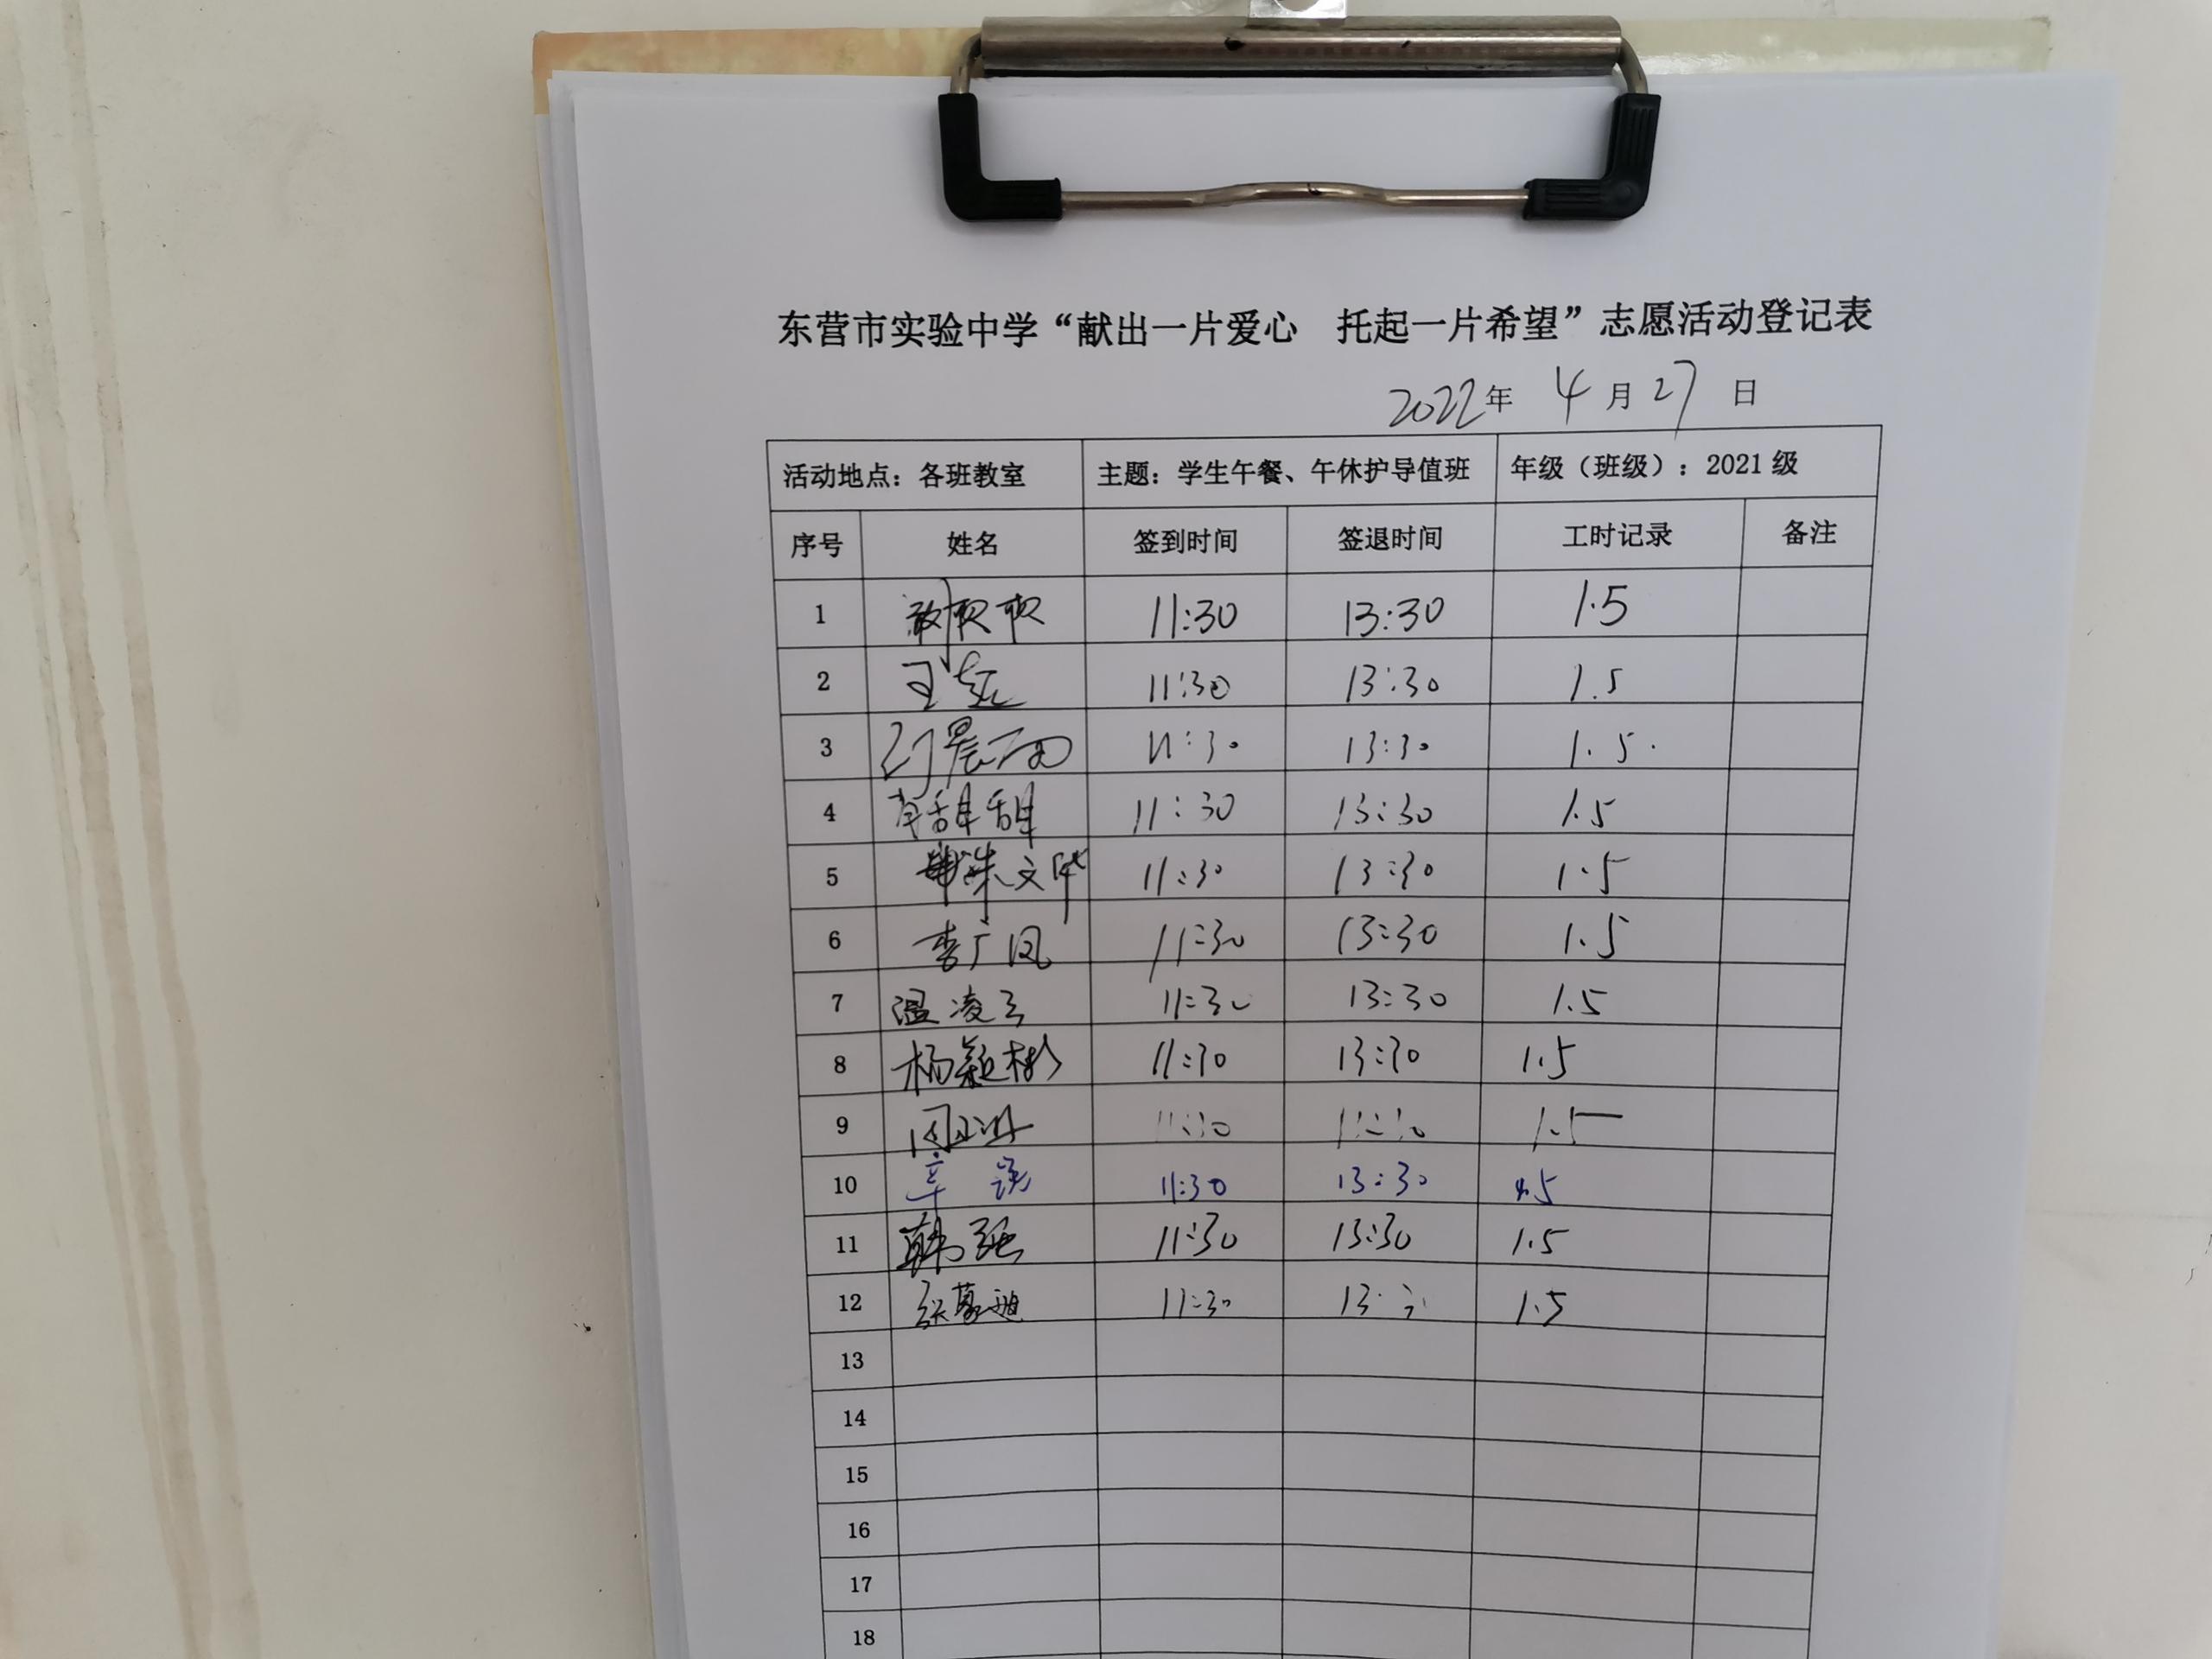 东营市实验中学“献出一片爱心 托起一片希望”志愿活动登记表
2022年 4月27日
活动地点：各班教室 主题：学生午餐、午休护导值班 年级（班级）：2021级
序号 姓名 签到时间 签退时间 工时记录 备注
1 11:30 13:30 1.5
2 王 11:30 13:30 1.5
3 晨 11:30 13:30 1.5
4 11:30 13:30 1.5
5 朱文 11:30 13:30 1.5
6 李广凤 11:30 13:30 1.5
7 温凌云 11:30 13:30 1.5
8 杨颖彬 11:30 13:30 1.5
9 11:30 1.5
10 辛 11:30 13:30 1.5
11 韩 11:30 13:30 1.5
12 张慕 11:30 13: 1.5
13
14
15
16
17
18